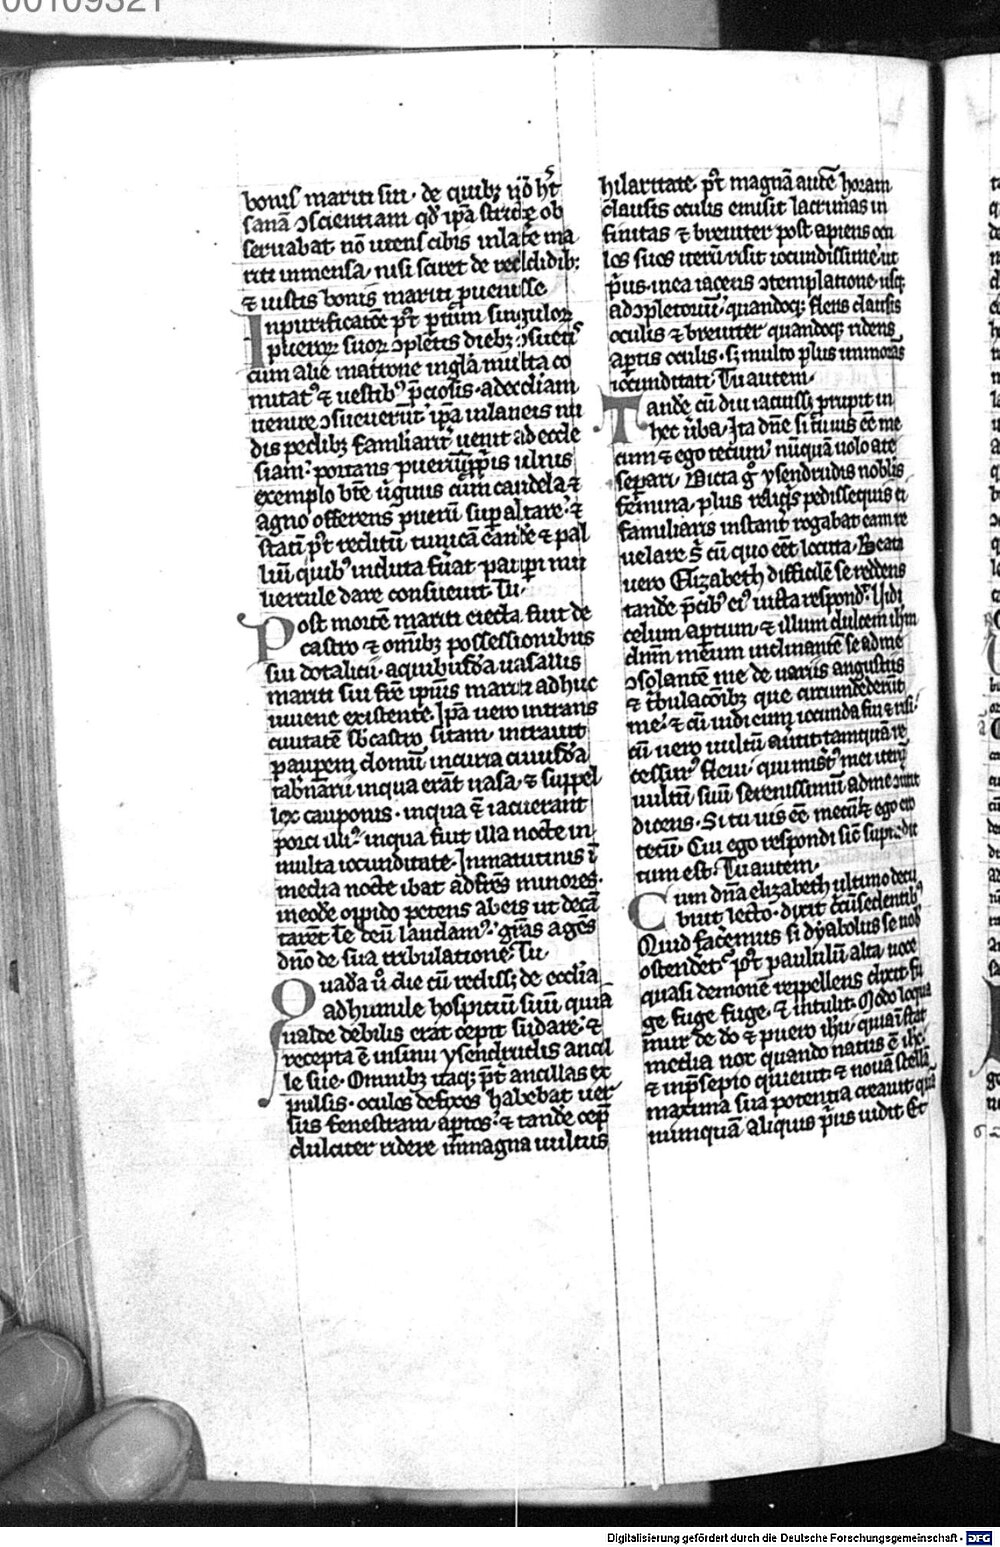 00109321
bonis mariti sui · de quibꝫ nō hꝫt
sanā ↄscientiam qđ ip̄a stricte ob
seruabat nō utens cibis in latꝫe ma
riti in mensa / nisi sciret de redditibꝫ
⁊ iustis bonis mariti ꝓuenisse
In purificatōe p̄t partum singuloꝝ
pueroꝝ suoꝝ ↄpletis diebꝫ ↄsuetis
cum alie matrone in gl̄a multa co
mitatꝰ ⁊ uestibꝰ p̄ciosis · ad eccl̄iam
uenire ↄsueuerūt ip̄a in laneis nu
dis pedibꝫ familiarit̄ uenit ad eccle
siam · portans puerū ꝓpriis ulnis
exemplo bt̄e uirginis cum candela ⁊
agno offerens puerū sup altare · ⁊
statī p̄t reditū tunicā eandē ⁊ pal
liū quibꝰ induta fūat paupi mu
liercule dare consueuit · Tu ·
Post mortē mariti eiecta fuit de
castro ⁊ omībꝫ possessionibus
sui dotalicii · a quibusdā uasallis
mariti sui frē ipīus mariti adhuc
iuuene existente · Ip̄a uero intrans
ciuitatē sb̄ castro sitam · intrauit
pauperem domū in curia cuiusdā
tab̄narii in qua erāt uasa · ⁊ suppel
lex cauponis · in qua ⁊ iacuerant
porci illiꝰ · in qua fuit illa nocte in
multa iocunditate · In matutinis ī
media nocte ibat ad frēs minores ·
in eode oppido petens ab eis ut decā
tarēt te deū laudamꝰ · grās agēs
dn̄o de sua tribulatione · Tu
Quadā ū die cū redisset de eccl̄ia
ad humile hospiciū suū quia
ualde debilis erat cepit sudare · ⁊
recepta ē in sinu ysendrudis ancil
le sue · Omnibꝫ itaqꝫ p̄t ancillas ex
pulsis · oculos defixos habebat uer
sus fenestram aptos · ⁊ tandē cep̄
dulciter ridere in magna uultus
hilaritate · p̄t magnā autē horam
clausis oculis emisit lacrimas in
finitas ⁊ breuiter post apiens ocu
los suos iterū risit iocundissime · ut
p̄us · in ea iacens ↄtemplatione usqꝫ
ad ↄpletoriū / quandoqꝫ flens clausis
oculis ⁊ breuiter quandoqꝫ ridens
aptis oculis · sꝫ multo plus immorās
iocunditati · Tu autem ·
Tandē cū diu iacuissꝫ prupit in
hec ūba · Ita dn̄e si tu uis eē me
cum ⁊ ego tecum / nūquā uolo a te
separi · Dicta gͦ ysendrudis nobilis
femina / plus religiosis pedissequis ei
familiaris instant̄ rogabat eam re
uelare s̄ cū quo eēt locuta · Beata
uero Elizabeth difficilē se reddens
tandē p̄cibꝰ eiꝰ iucta respond · Uidi
celum aptum · ⁊ illum dulcem ihm
dn̄m meum inclinantē se ad me
ↄsolantē me de uariis angustiis
⁊ tribulacōibꝫ que circumdederūt
me · ⁊ cū uidi eum iocunda fui ⁊ risi ·
cū uero uultū auertit tamquā re
cessurꝰ fleui · qui misertꝰ mei iterū
uultū suū serenissimū ad me ↄuertit
dicens · Si tu uis eē mecū ⁊ ego ero
tecū · Cui ego respondi sic̄ supradic
tum est · Tu autem ·
Cum dn̄a elizabeth ultimo decu
buit lecto · dixit circūsedentibꝰ
Quid facemus si dyabolus se nob̄
ostendet · Et p̄t paululū alta uoce
quasi demonē reppellens dixit · fu
ge fuge fuge · ⁊ intulit · Modo loqua
mur de dō ⁊ puero ihū / quia īstat
media nox quando natus ē ihc
⁊ in p̄sepio quieuit ⁊ nouā stellā
maxima sua potentia creauit quā
numquā aliquis p̄us uidit Et
Digitalisierung gefördert durch die Deutsche Forschungsgemeinschaft - DFG